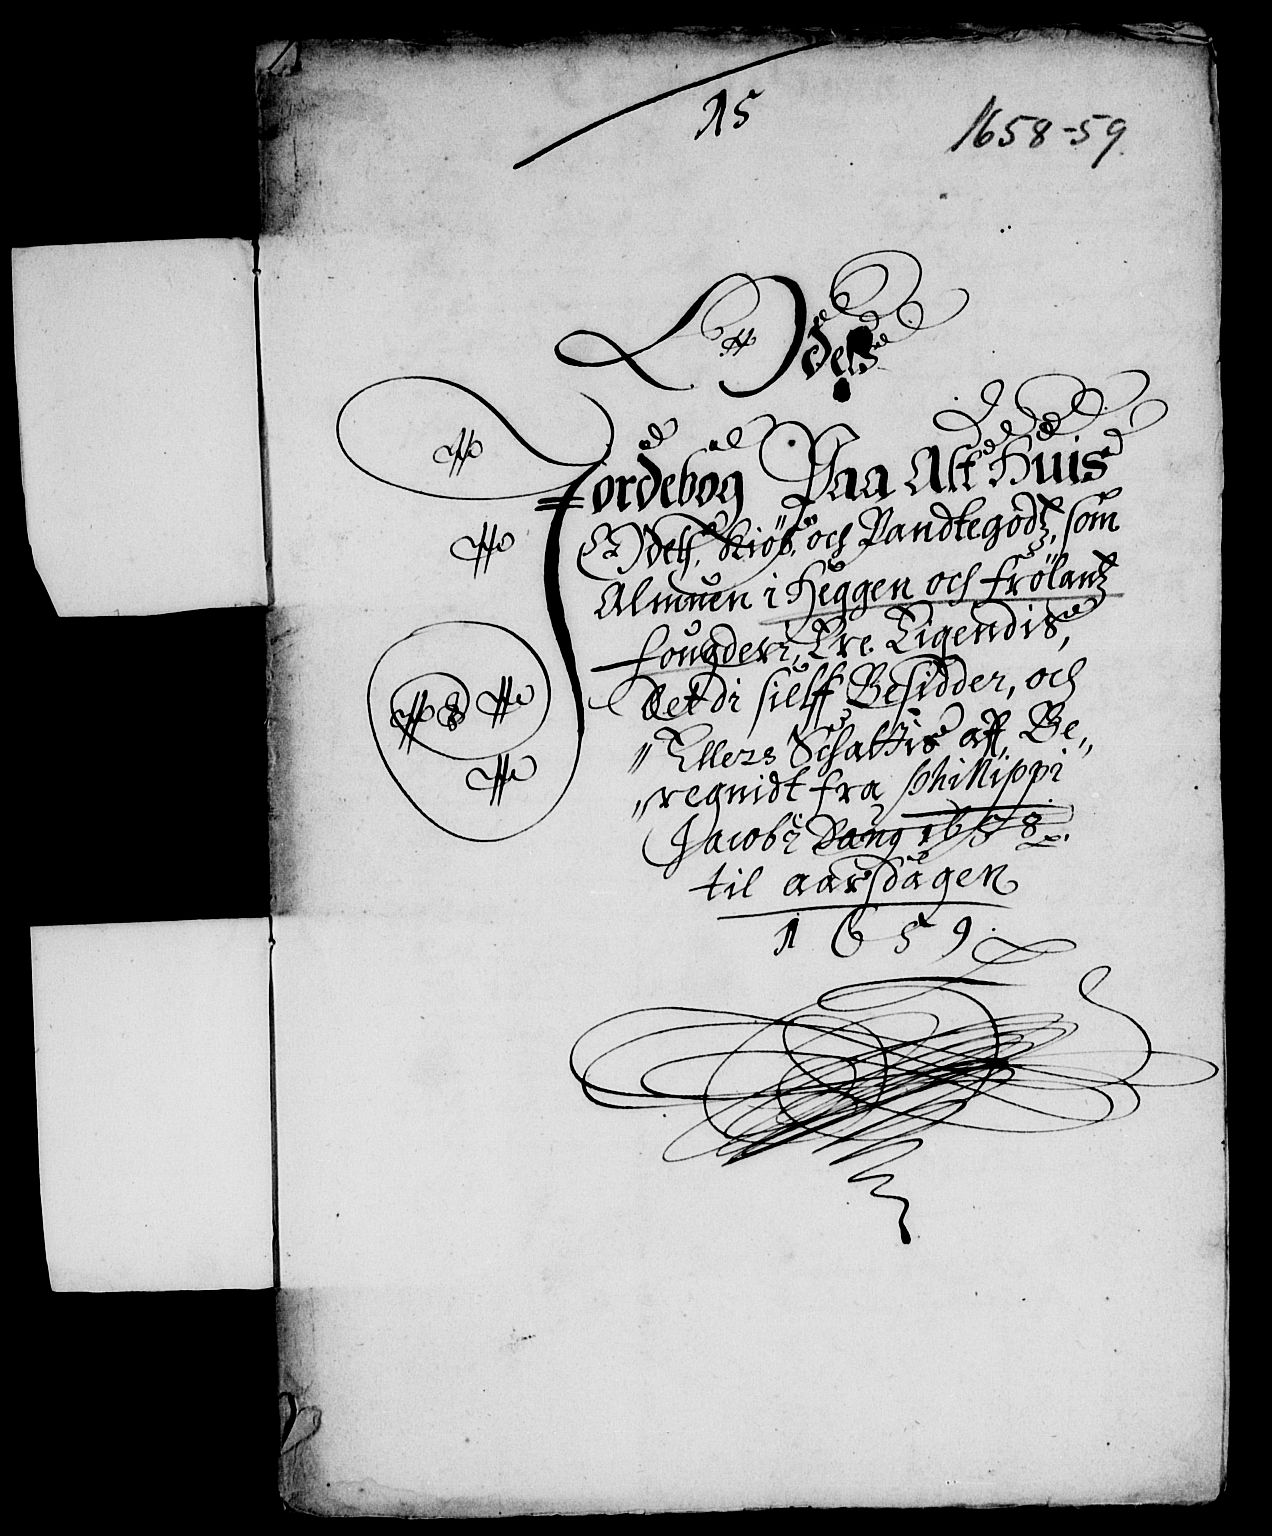 15
1658-59
Odels
Jordebog Paa Alt Huis
Odels, Kiøb, och Pandtegodz, som
Almuen i Heggen och Frølandz
fougderi, Ere Eigendis,
Det di sielff Besidder, och
"Ellers Schattis aff, Be„
„regnidt fra Philippi
Jacobi Dang 1658
til aarsdagen
1659.